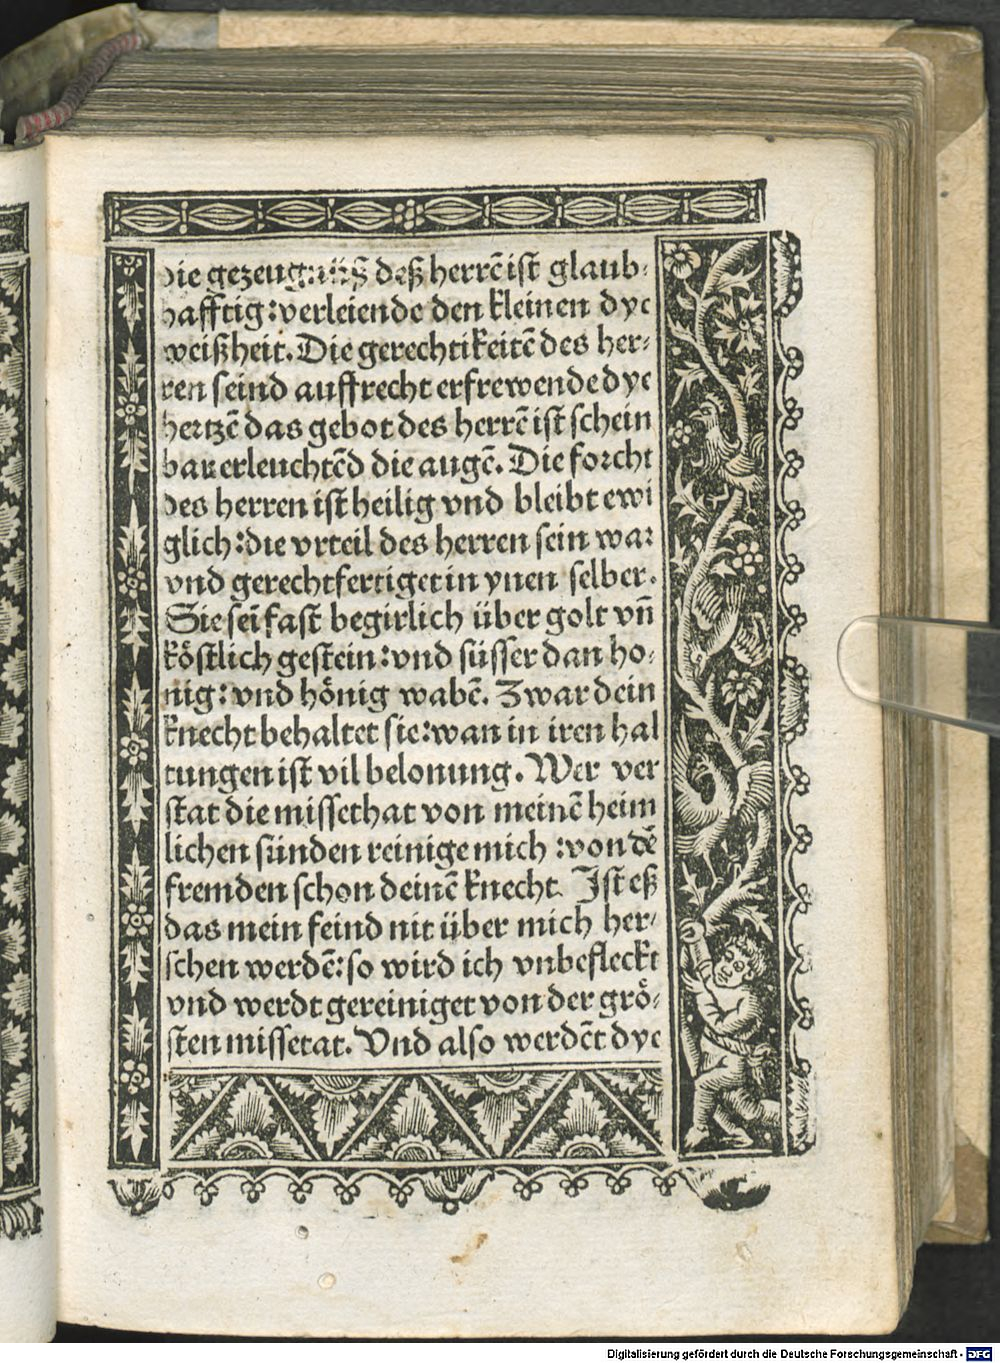 die gezeugnüß deß herrē ist glaub⸗
hafftig:verleiende den kleinen dye
weißheit. Die gerechtikeitē des her⸗
ren seind auffrecht erfrewende dye
hertzē das gebot des herrē ist schein
bar erleuchtēd die augē. Die forcht
des herren ist heilig vnd bleibt ewi
glich:die vrteil des herren sein war
vnd gerechtfertiget in ynen selber.
Sie seī fast begirlich über golt vn̄
köstlich gestein:vnd süsser dan ho⸗
nig: vnd hönig wabē. Zwar dein
knecht behaltet sie:wan in iren hal
tungen ist vil belonung. Wer ver
stat die missethat von meinē heim
lichen sünden reinige mich :von dē
fremden schon deinē knecht. Ist eß
das mein feind nit über mich her⸗
schen werdē:so wird ich vnbefleckt
vnd werdt gereiniget von der grö⸗
sten missetat. Vnd also werdēt dye
Digitalisierung gefördert durch die Deutsche Forschungsgemeinschaft - DFG